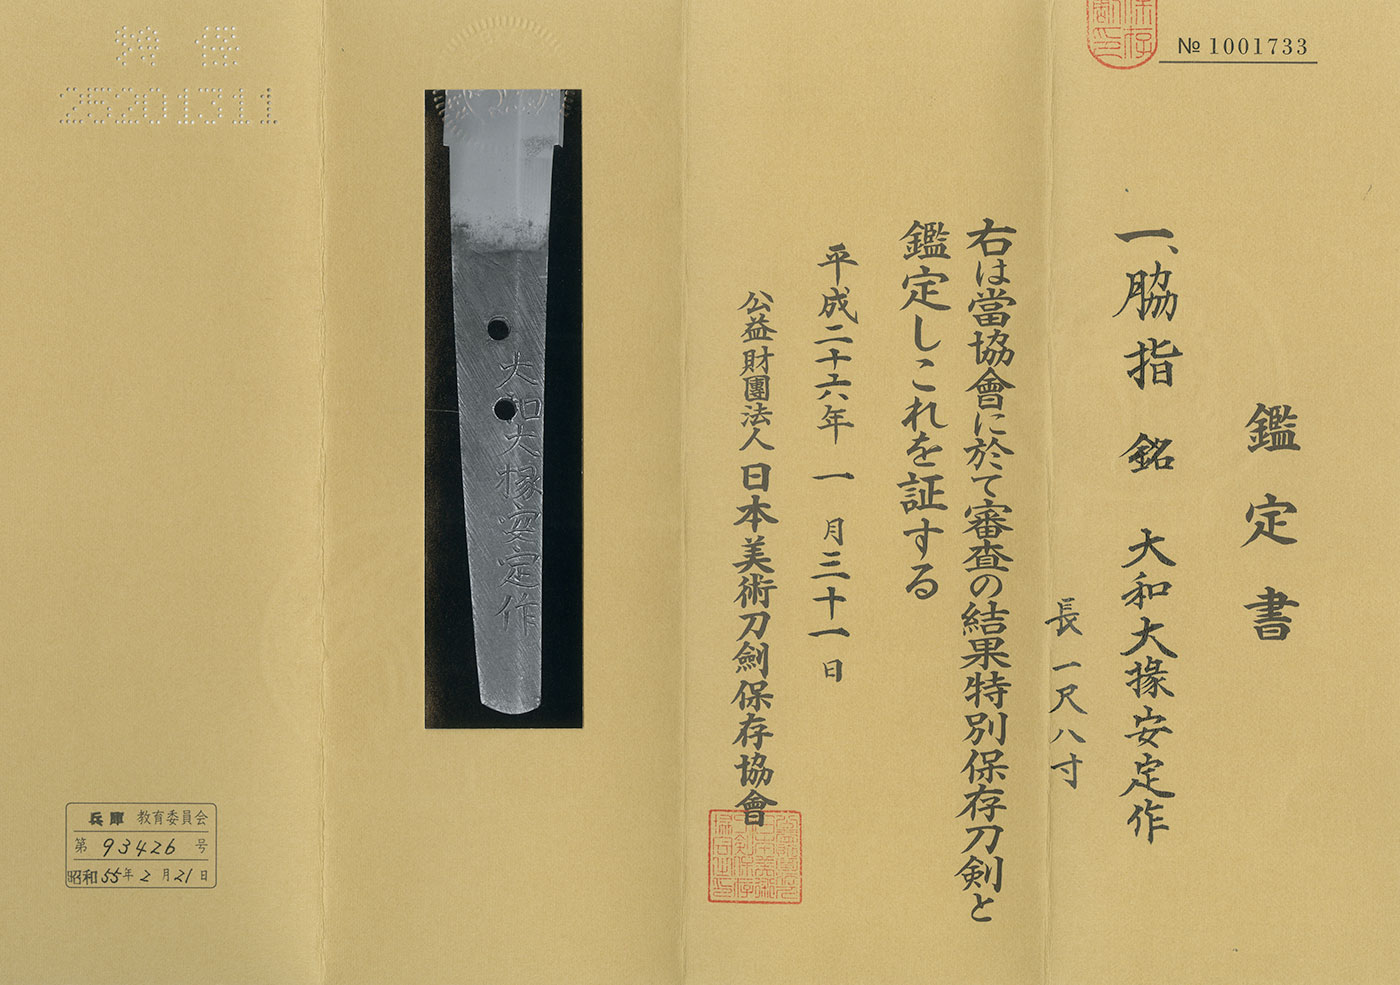 № 1001733
鑑定書
一、脇指 銘 大和大掾安定作
長一尺八寸
右は當協會に於て審査の結果特別保存刀剣と
鑑定しこれを証する
平成二十六年一月三十一日
公益財團法人日本美術刀劍保存協會
大和大掾安定作
特保
25201311
兵庫教育委員会
第93426号
昭和55年2月21日